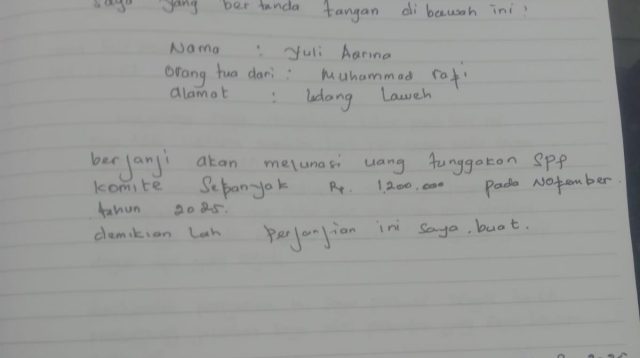 saya yang bertanda tangan dibawah ini :
Nama : Yuli Asrina
orang tua dari : Muhammad rapi
alamat : Udang Laweh
berjanji akan melunasi uang tunggakan SPP
komite Sebanyak Rp. 1.200.000 pada Nopember
tahun 2025.
demikian Lah perjanjian ini saya buat.